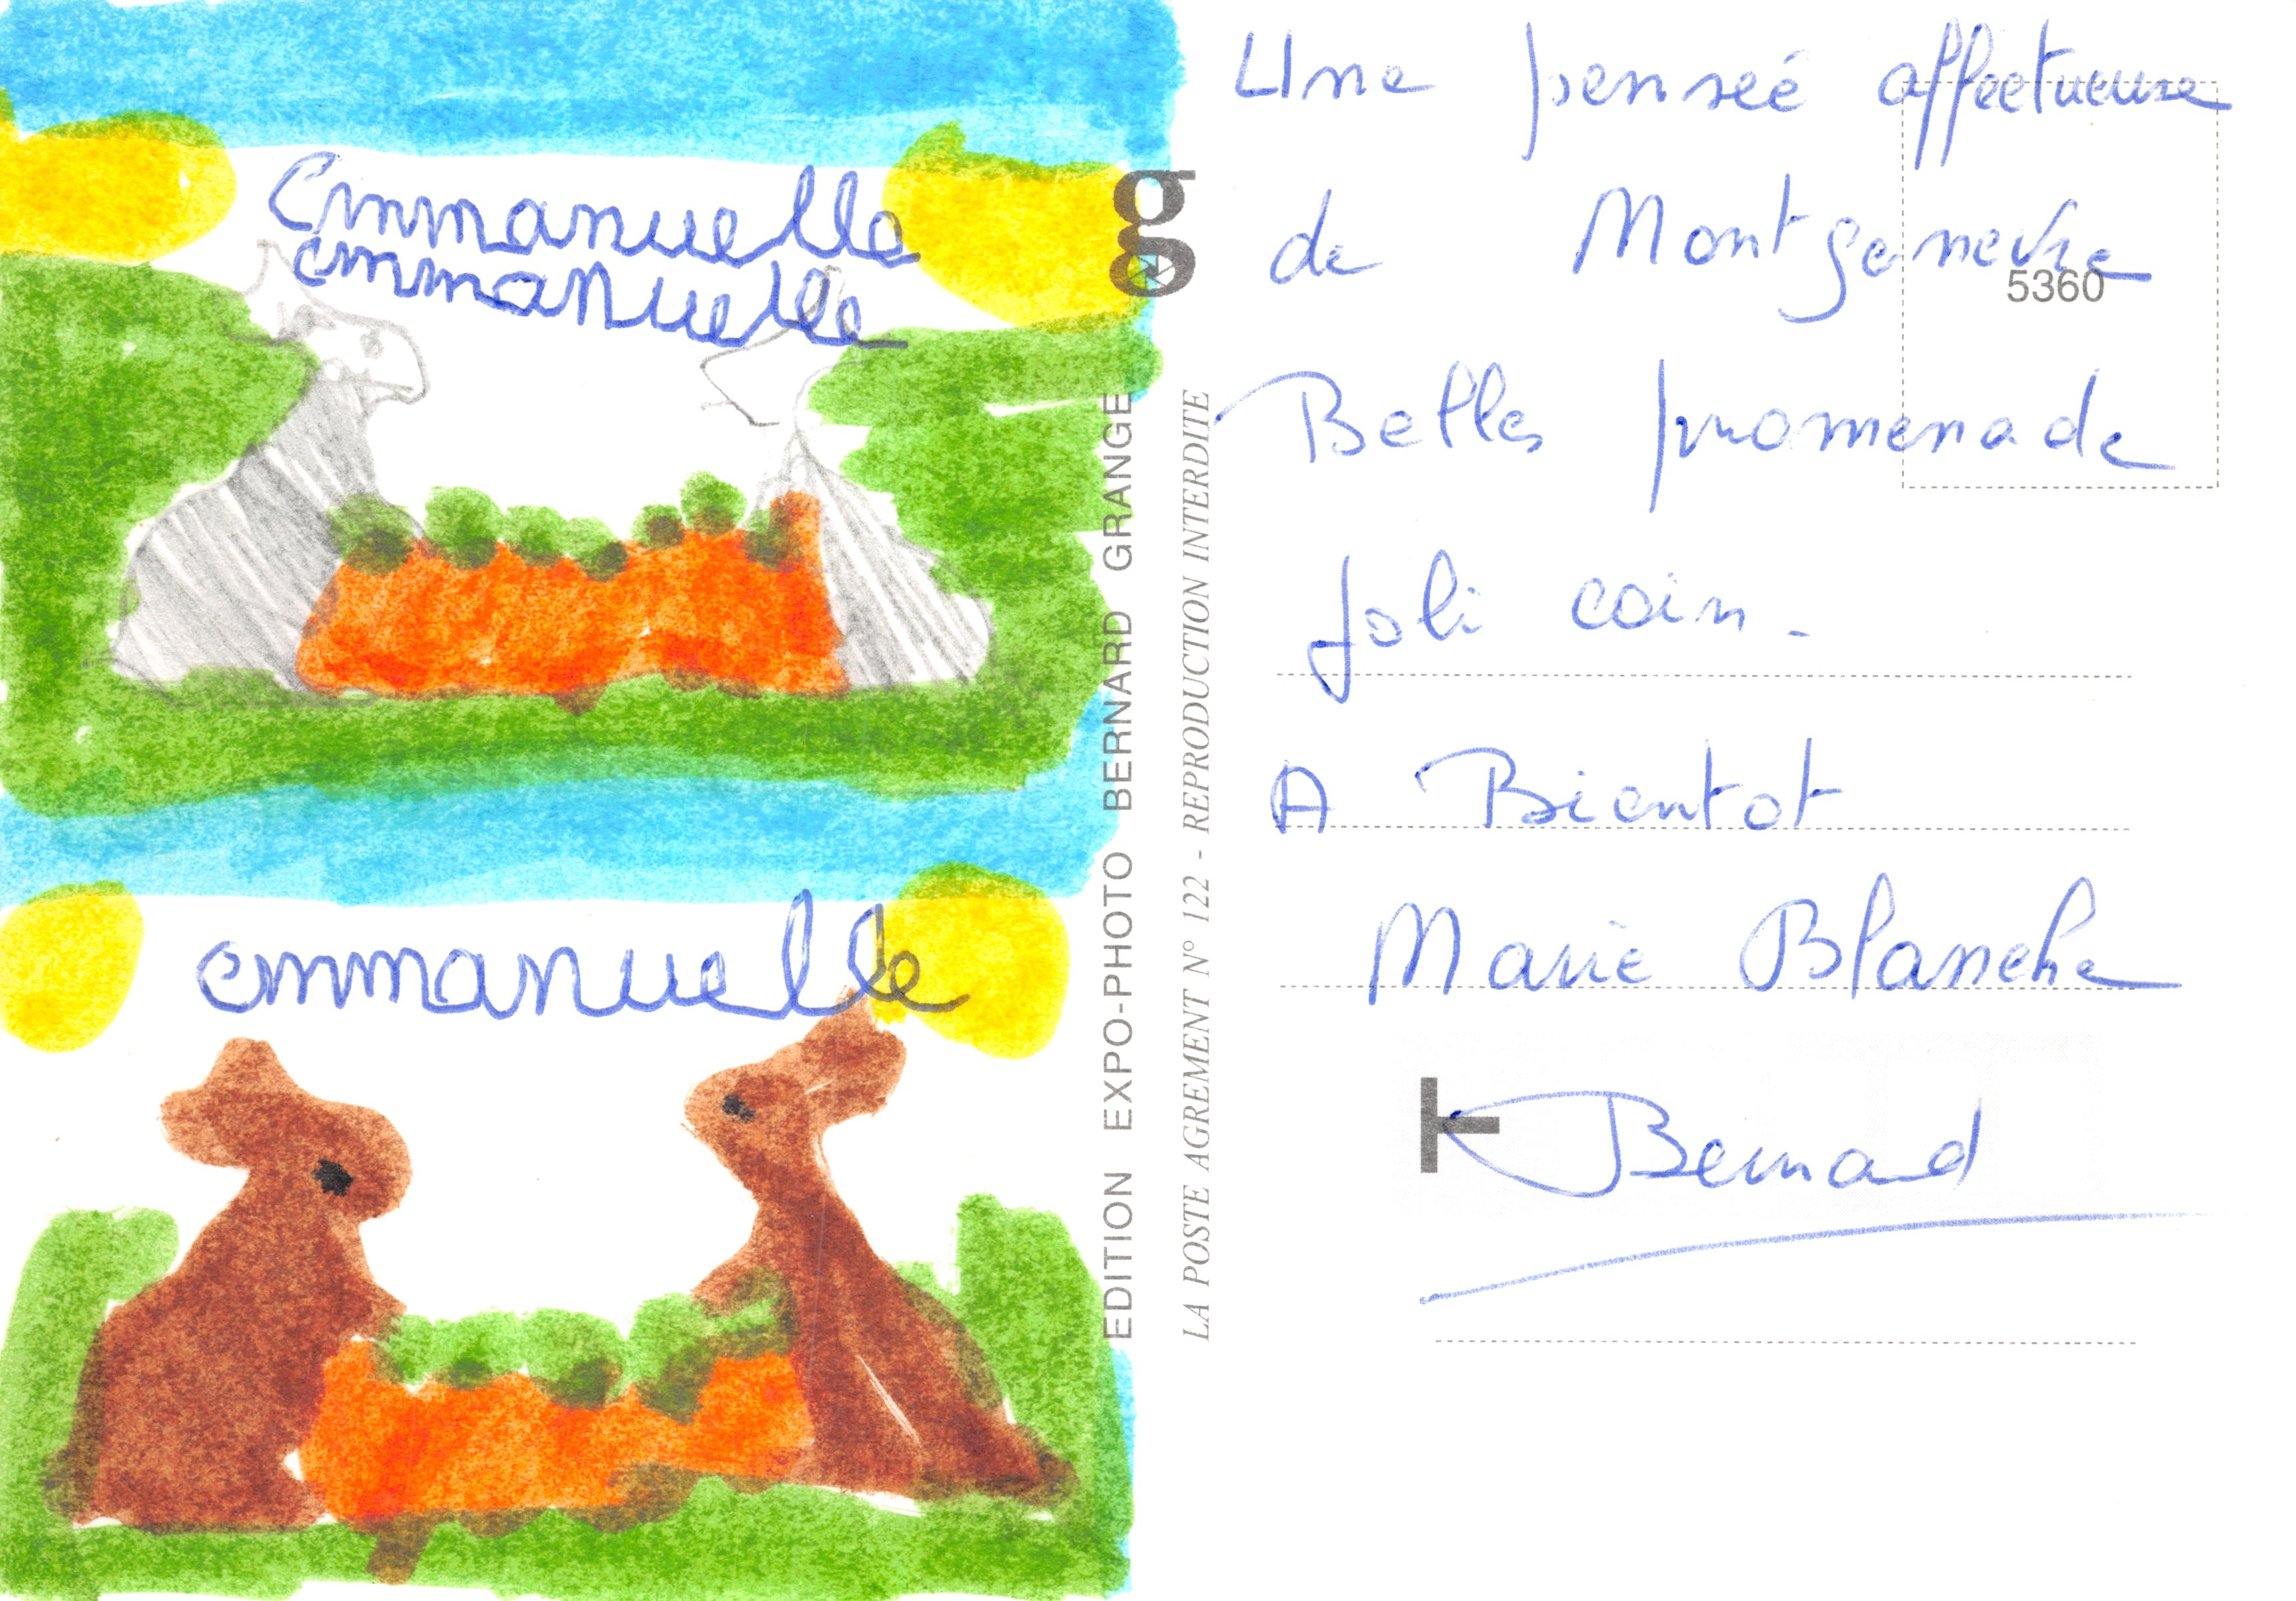 Emmanuelle
emmanuelle
emmanuelle
g
EDITION EXPO-PHOTO BERNARD GRANGE
LA POSTE AGREMENT N° 122 - REPRODUCTION INTERDITE
Une penseé affectueuse
de Montgenevre
5360
Belles promenade
Joli coin.
A Bientot
Marie Blanche
T
Bernard